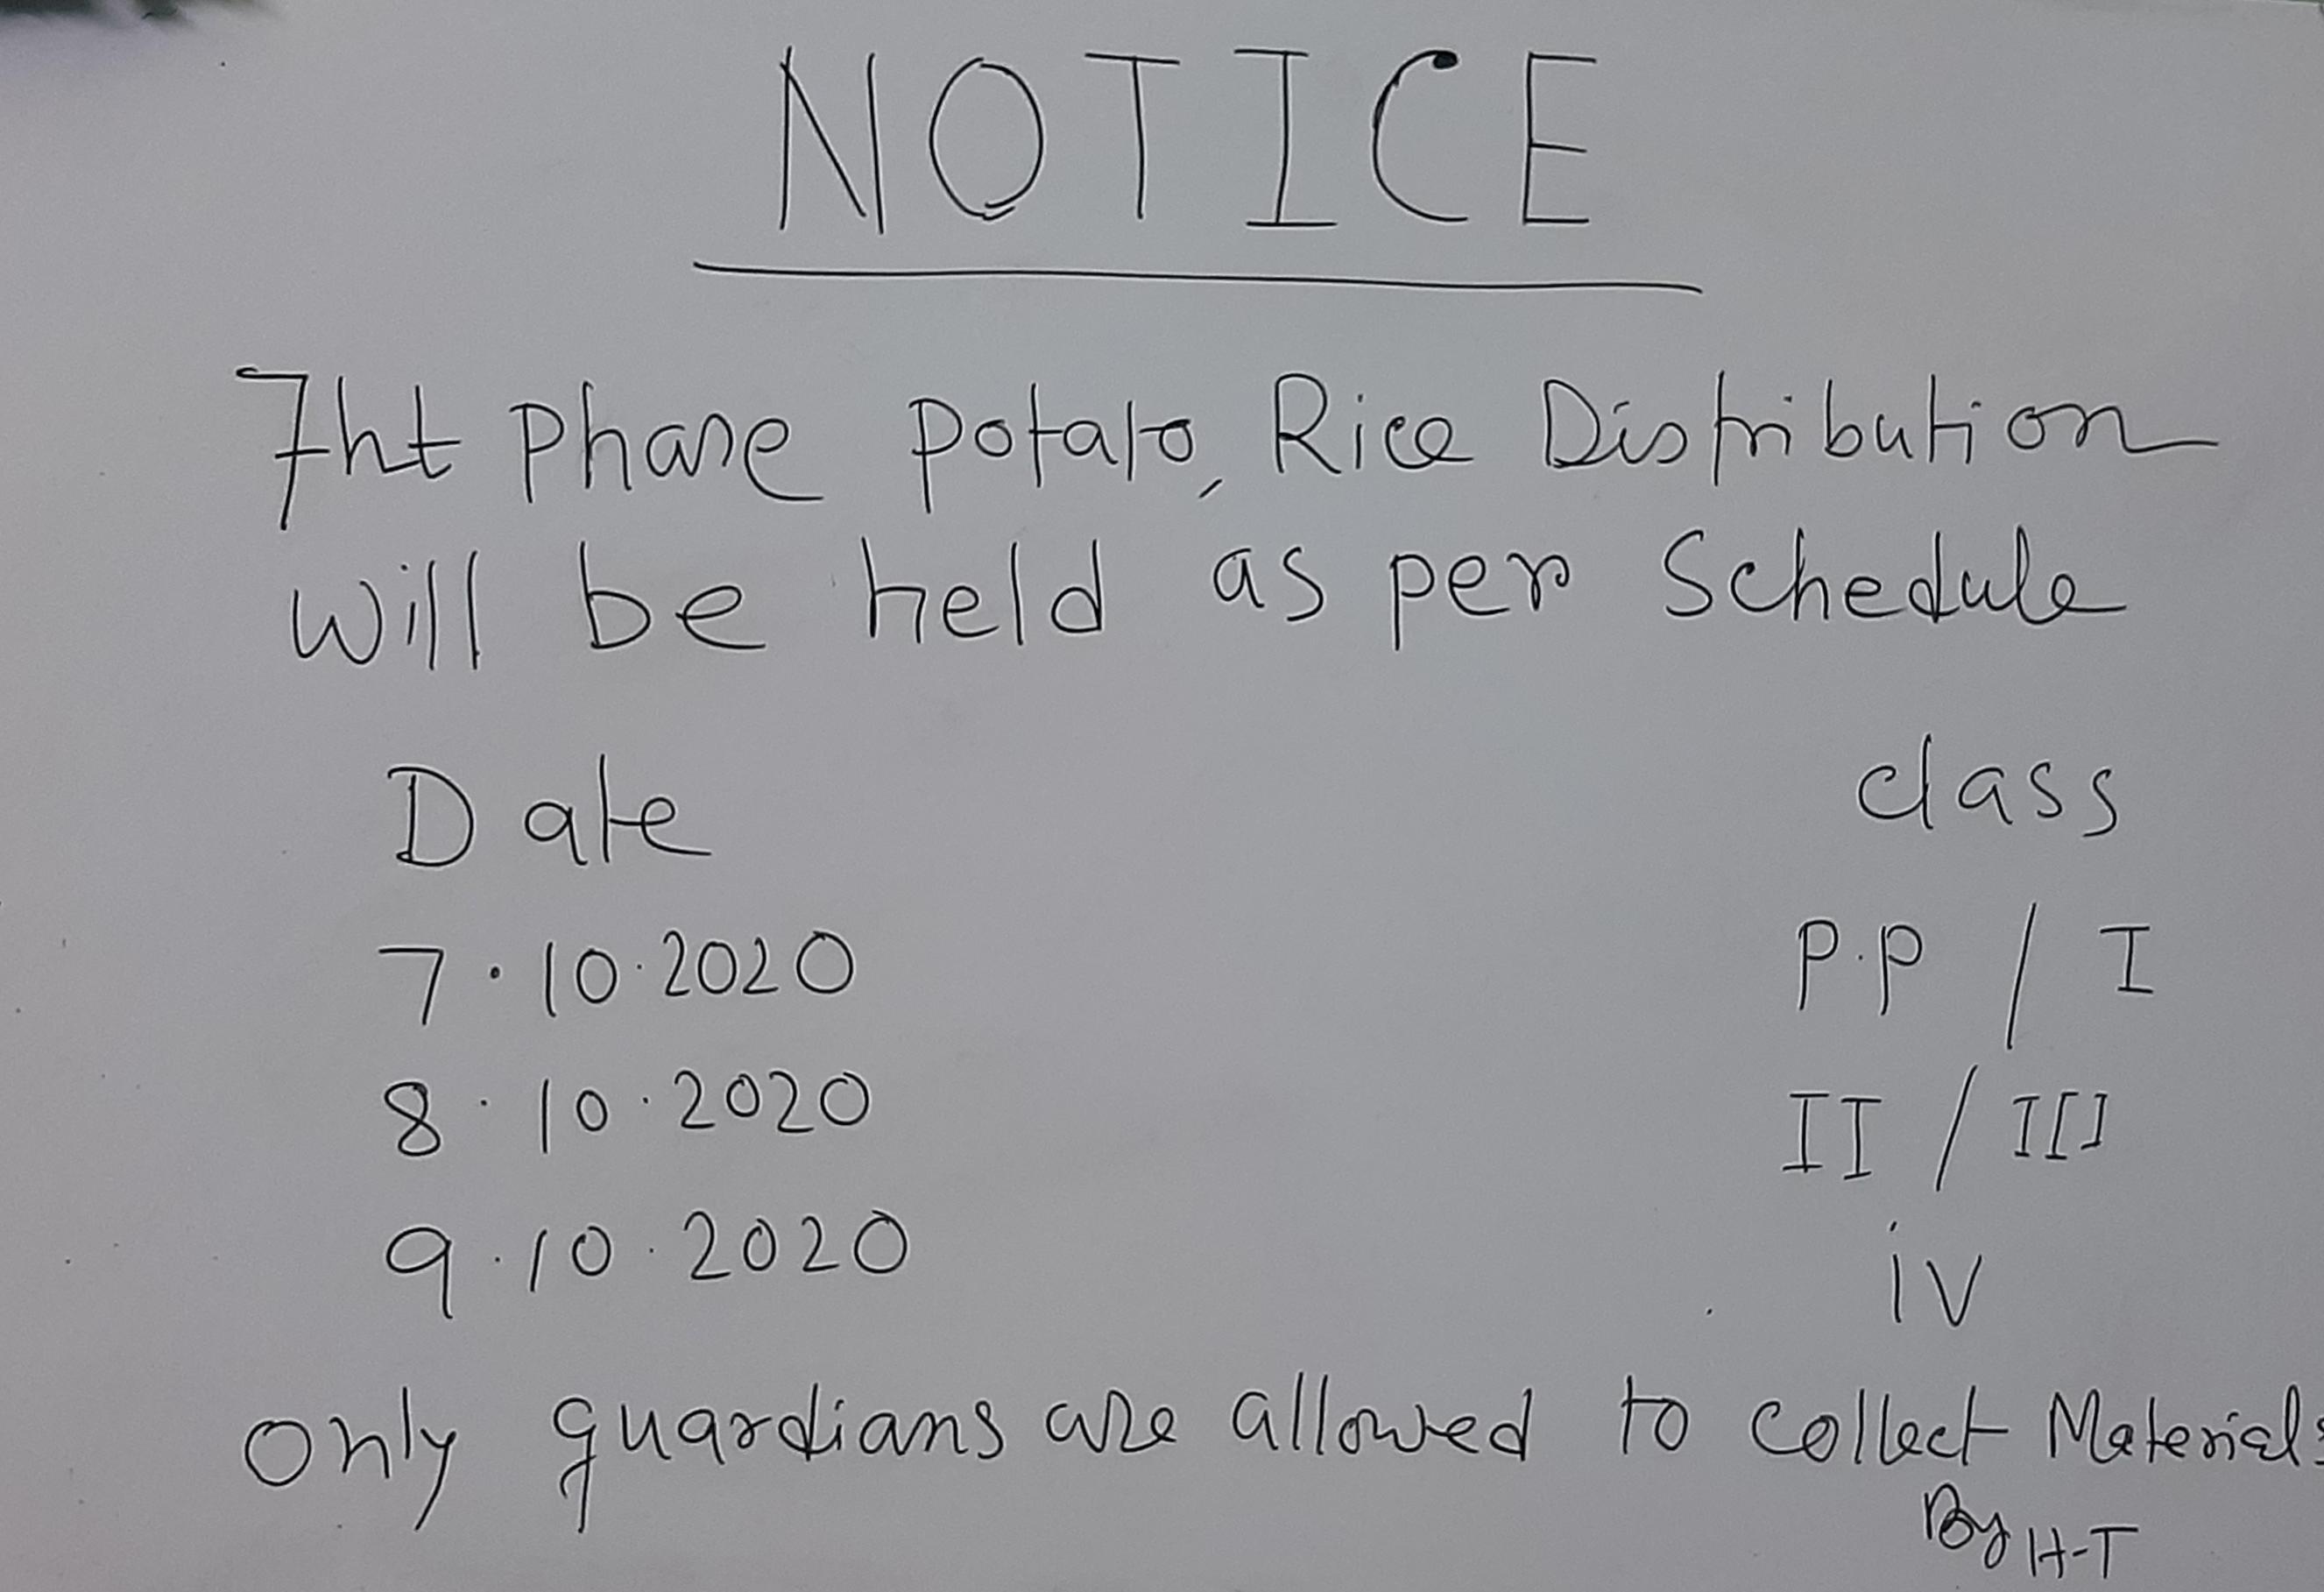 NOTICE
7ht phase potato, Rice Distribution
will be held as per Schedule
Date class
7.10.2020 P.P / I
8.10.2020 II / III
9.10.2020 iv
only guardians are allowed to collect Materials
By H-T